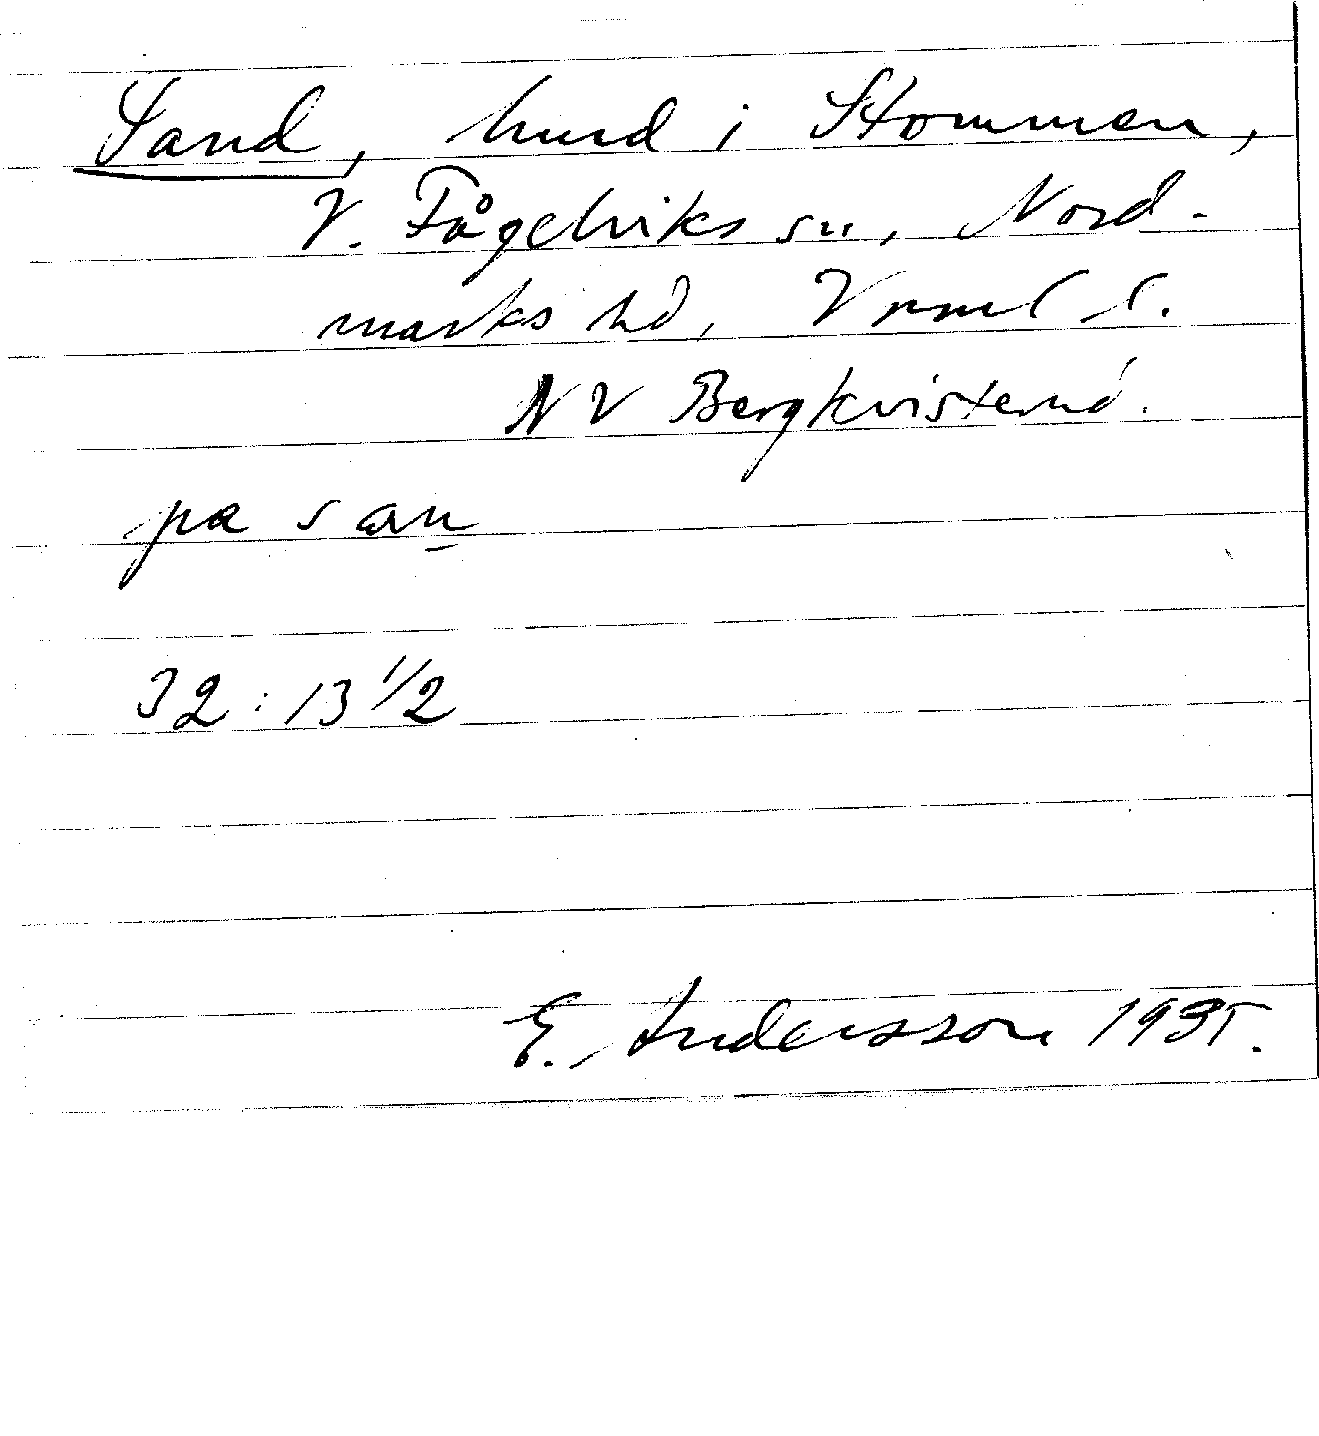 Sand, hmd i Stommen,
V. Fågelviks sn, Nord-
marks hd, Vrml l.
NV Bergkvisterud.
pa san
32:13 1/2
E. Andersson 1935.